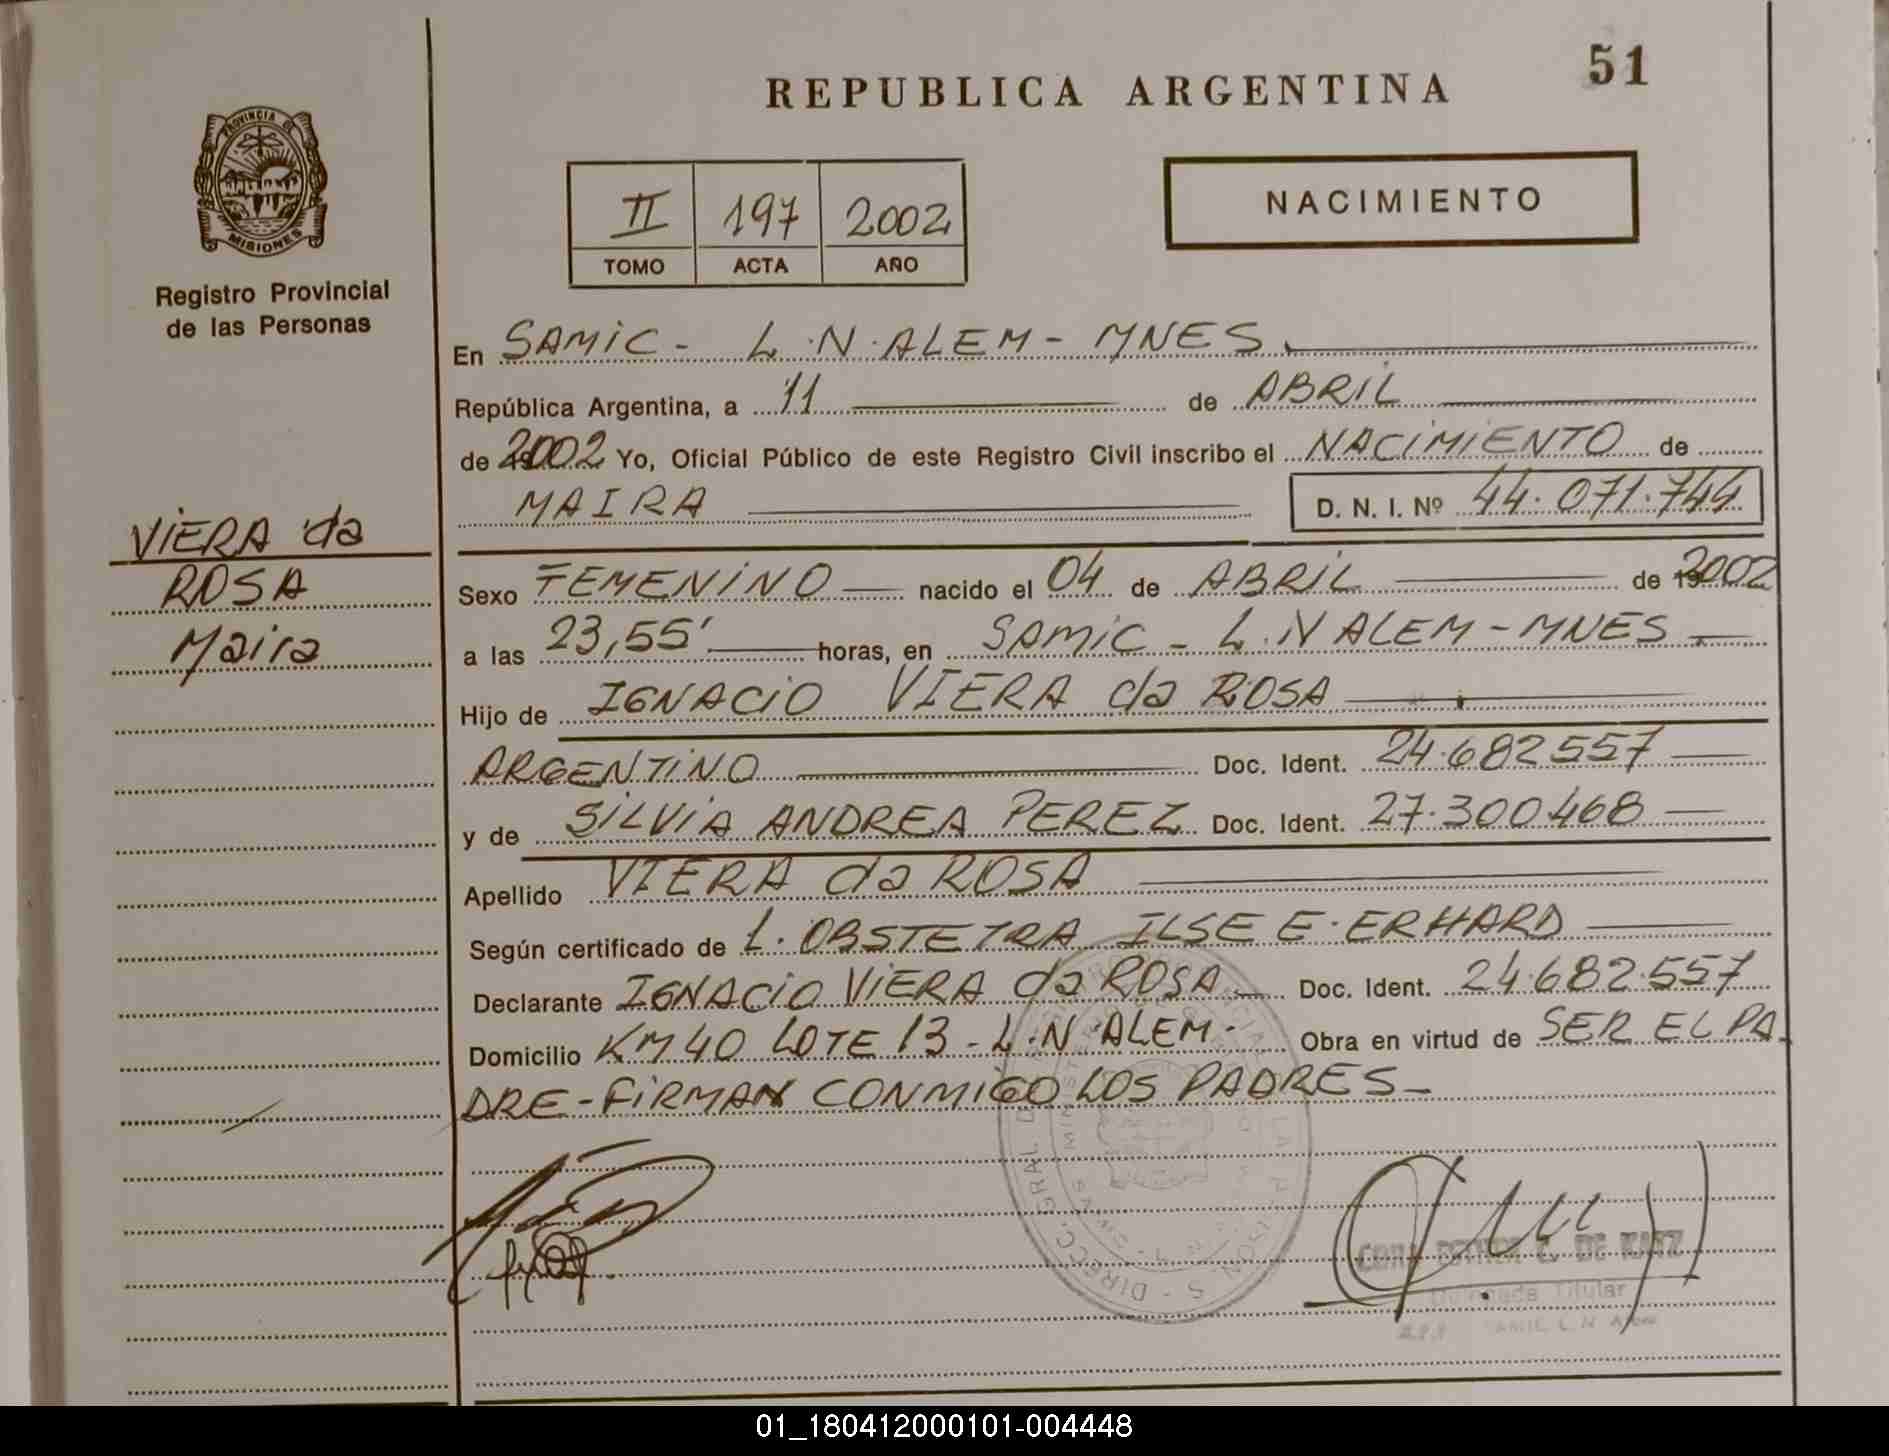 REPUBLICA ARGENTINA
51
PROVINCIA DE
MISIONES
Registro Provincial
de las Personas
II 197 2002
TOMO ACTA AÑO
NACIMIENTO
En SAMIC - L.N.ALEM - MNES.
República Argentina, a 11 de ABRIL
de 2002 Yo, Oficial Público de este Registro Civil inscribo el NACIMIENTO de
MAIRA D. N. I. Nº 44.071.744
VIERA da
ROSA
Maira
Sexo FEMENINO nacido el 04 de ABRIL de 2002
a las 23,55' horas, en SAMIC - L.N ALEM - MNES.
Hijo de IGNACIO VIERA da ROSA
ARGENTINO Doc. Ident. 24.682557
y de SILVIA ANDREA PEREZ Doc. Ident. 27.300468
Apellido VIERA da ROSA
Según certificado de L. OBSTETRA ILSE E. ERHARD
Declarante IGNACIO VIERA da ROSA Doc. Ident. 24.682.557
Domicilio KM 40 LOTE 13 - L.N. ALEM. Obra en virtud de SER EL PA
DRE - FIRMAN CONMIGO LOS PADRES -
ESTHER C. DE KATZ
Delegada Titular
01_180412000101-004448